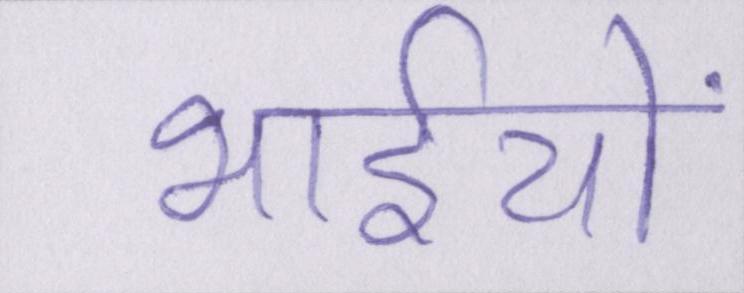 भाईयों